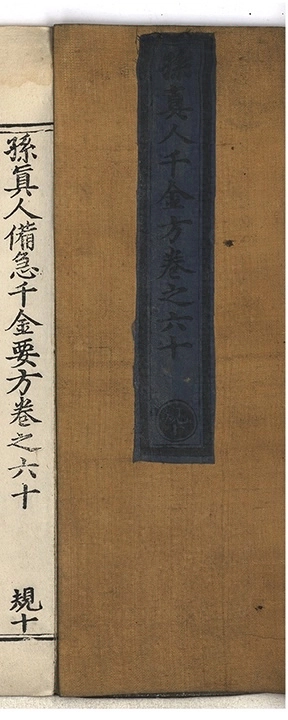 孫真人千金方卷之六十
規十
孫眞人備急千金要方卷之六十
規十